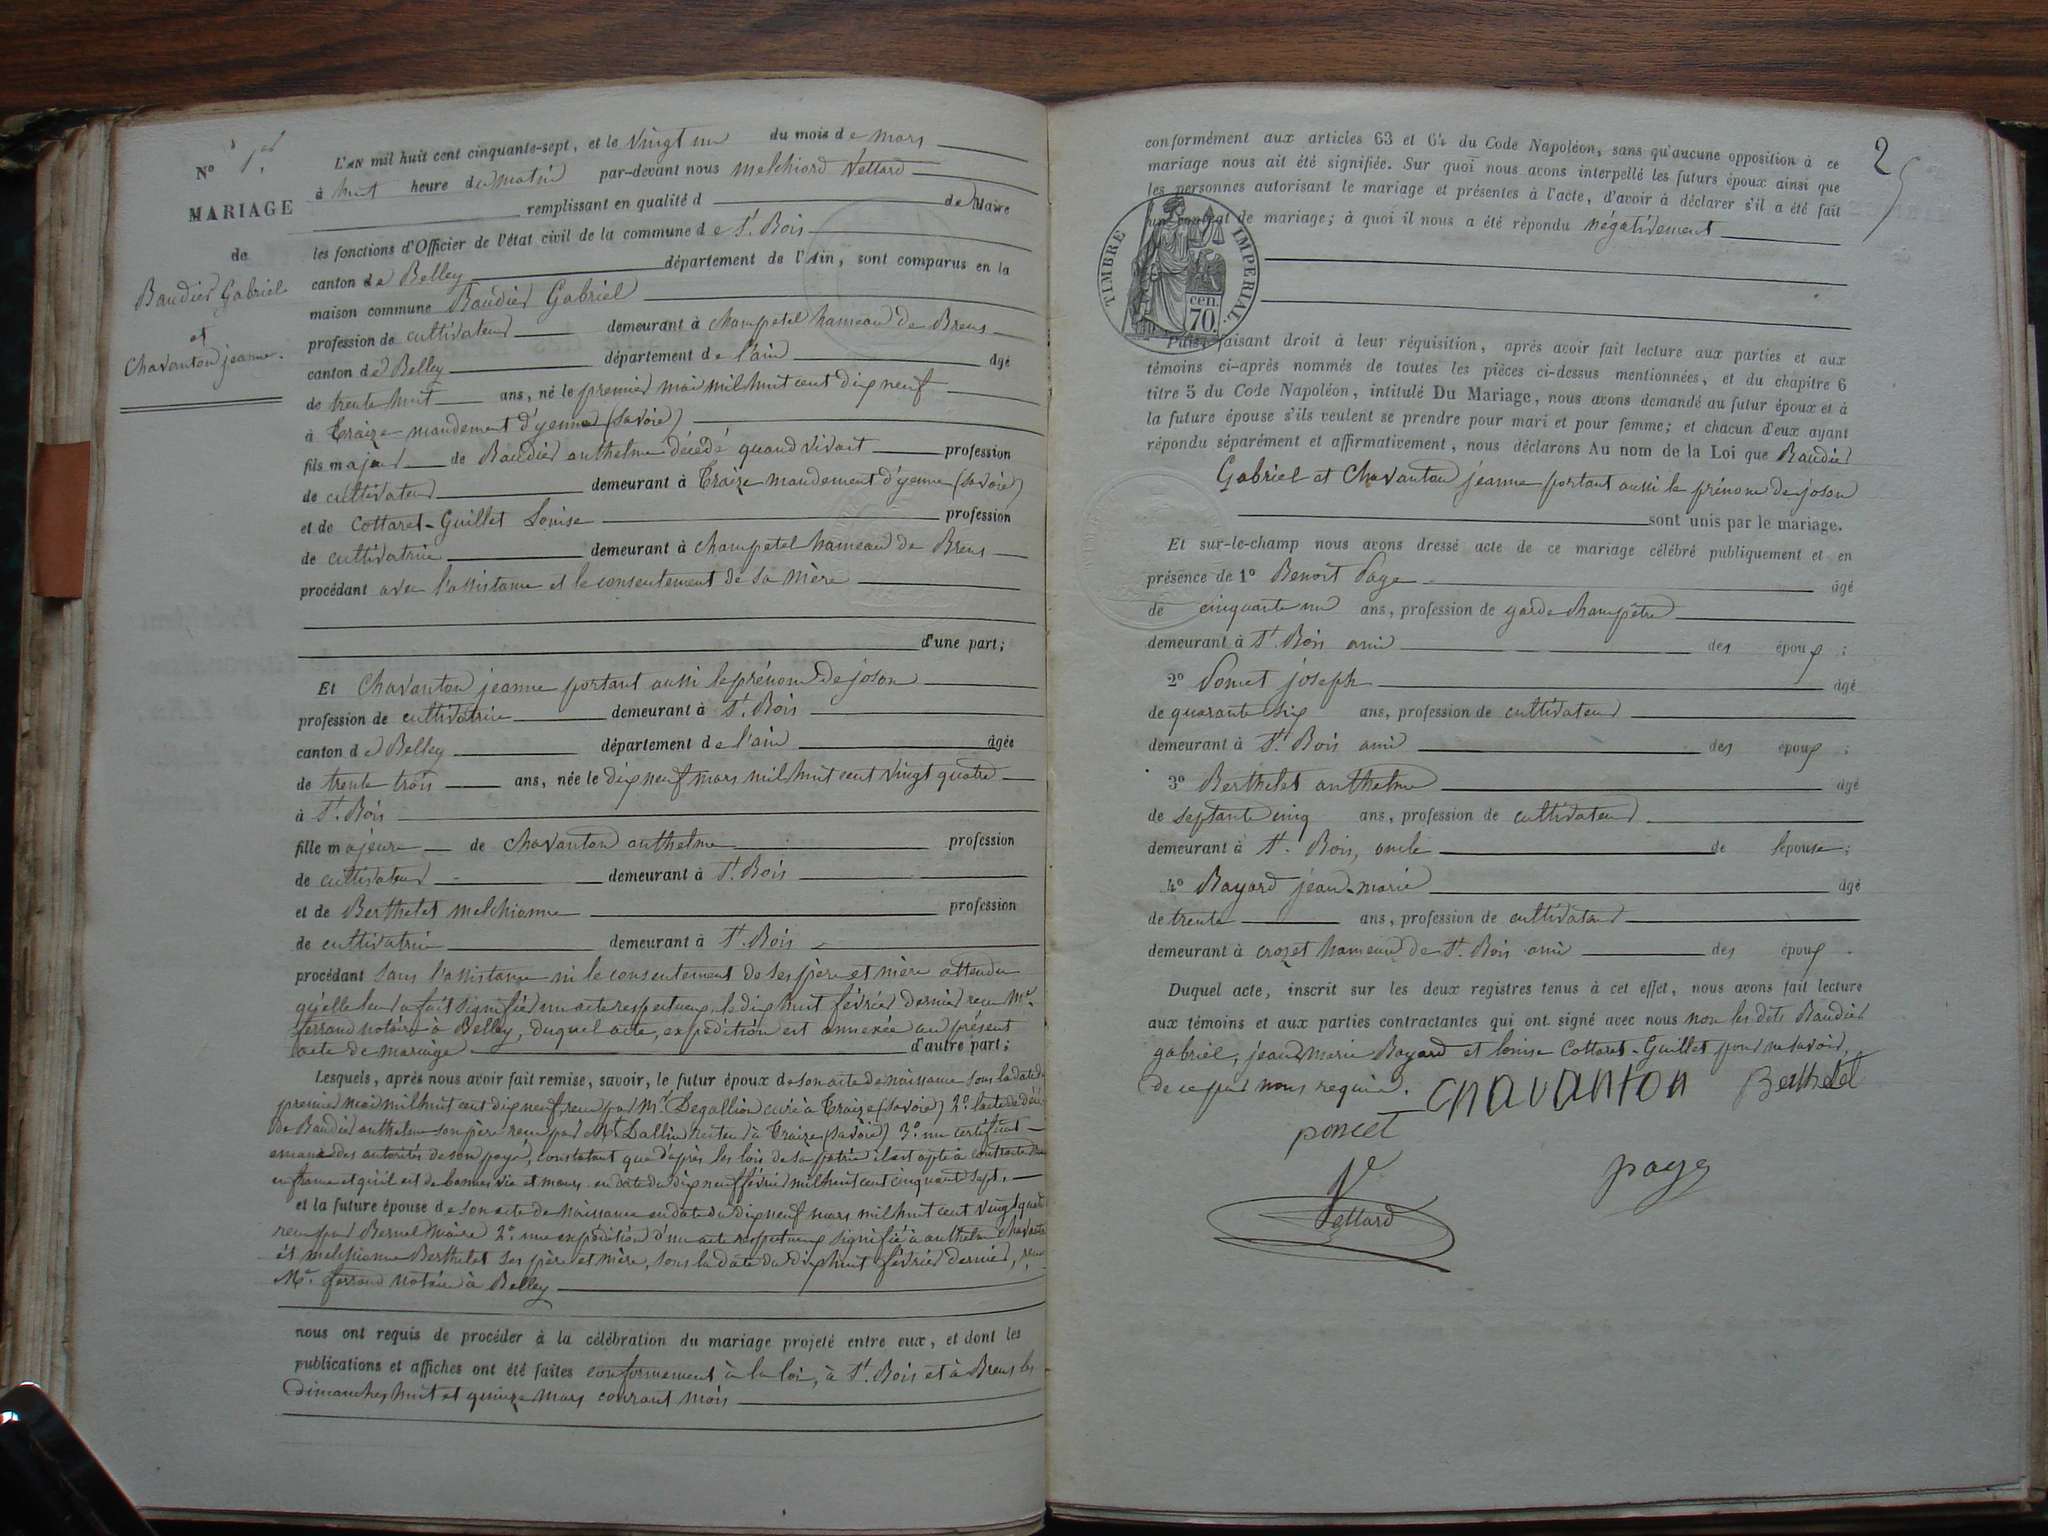 N° 1er
MARIAGE
de
Baudier Gabriel
et
Chavanton jeanne.
L'AN mil huit cent cinquante-sept, et le vingt un du mois de mars
à huit heure du matin par-devant nous melchiord Vettard
remplissant en qualité de Maire
les fonctions d'Officier de l'état civil de la commune de St. Bois
canton de Belley département de l'Ain, sont comparus en la
maison commune Baudier Gabriel
profession de cultivateur demeurant à champetel hameau de Brens
canton de Belley département de l'ain âgé
de trente huit ans, né le premier mai mil huit cent dix neuf
à Traize mandement d'yenne (Savoie)
fils majeur de Baudier anthelme décédé quand vivait profession
de cultivateur demeurant à Traize mandement d'yenne (Savoie)
et de Cottaret-Guillet Louise profession
de cultivatrice demeurant à champetel hameau de Brens
procédant avec l'assistance et le consentement de sa mère
d'une part;
Et Chavanton jeanne portant aussi le prénom de joson
profession de cultivatrice demeurant à St. Bois
canton de Belley département de l'ain âgée
de trente trois ans, née le dix neuf mars mil huit cent vingt quatre
à St. Bois
fille majeure de Chavanton anthelme profession
de cultivateur demeurant à St. Bois
et de Berthelet melchionne profession
de cultivatrice demeurant à St. Bois
procédant sans l'assistance ni le consentement de ses père et mère attendu
qu'elle leur a fait signifier un acte respectueux le dix huit février dernier reçu Me.
ferrand notaire à Belley, duquel acte, expédition est annexée au présent
acte de mariage d'autre part;
Lesquels, après nous avoir fait remise, savoir, le futur époux de son acte de naissance sous la date du
premier mai mil huit cent dix neuf, reçu par Mr. Degallion curé à Traize (Savoie) 2° l'acte de décès
de Baudier anthelme son père reçu par Mr Dallin recteur à Traize (Savoie) 3° un certificat
émané des autorités de son pays, constatant que d'après les lois de sa patrie il est apte à contracter
en france et qu'il est de bonnes vie et mœurs en date du dix neuf février mil huit cent cinquante sept,
et la future épouse de son acte de naissance en date du dix neuf mars mil huit cent vingt quatre
reçu par Bernel Maire 2° une expédition d'un acte respectueux signifié à anthelme Chavanton
et melchionne Berthelet ses père et mère, sous la date du dix huit février dernier, reçu
Me. ferrand notaire à Belley
nous ont requis de procéder à la célébration du mariage projeté entre eux, et dont les
publications et affiches ont été faites conformément à la loi, à St. Bois et à Brens les
dimanches huit et quinze mars courant mois
2
conformément aux articles 63 et 64 du Code Napoléon, sans qu'aucune opposition à ce
mariage nous ait été signifiée. Sur quoi nous avons interpellé les futurs époux ainsi que
les personnes autorisant le mariage et présentes à l'acte, d'avoir à déclarer s'il a été fait
un contrat de mariage; à quoi il nous a été répondu négativement
TIMBRE IMPERIAL.
cen.
70.
Puis, faisant droit à leur réquisition, après avoir fait lecture aux parties et aux
témoins ci-après nommés de toutes les pièces ci-dessus mentionnées, et du chapitre 6
titre 5 du Code Napoléon, intitulé Du Mariage, nous avons demandé au futur époux et à
la future épouse s'ils veulent se prendre pour mari et pour femme; et chacun d'eux ayant
répondu séparément et affirmativement, nous déclarons Au nom de la Loi que Baudier
Gabriel et Chavanton jeanne portant aussi le prénom de joson
sont unis par le mariage.
Et sur-le-champ nous avons dressé acte de ce mariage célébré publiquement et en
présence de 1° Benoît Page âgé
de cinquante un ans, profession de garde champêtre
demeurant à St Bois ami des époux ;
2° Poncet joseph âgé
de quarante six ans, profession de cultivateur
demeurant à St. Bois ami des époux ;
3° Berthelet anthelme âgé
de septante cinq ans, profession de cultivateur
demeurant à St. Bois, oncle de l'épouse ;
4° Bayard jean-marie âgé
de trente ans, profession de cultivateur
demeurant à crozet hameau de St. Bois ami des époux .
Duquel acte, inscrit sur les deux registres tenus à cet effet, nous avons fait lecture
aux témoins et aux parties contractantes qui ont signé avec nous non les dits Baudier
gabriel, jean marie Bayard et louise Cottaret-Guillet pour ne savoir,
de ce par nous requis. CHAVANTON Berthelet
poncet
page
Vettard